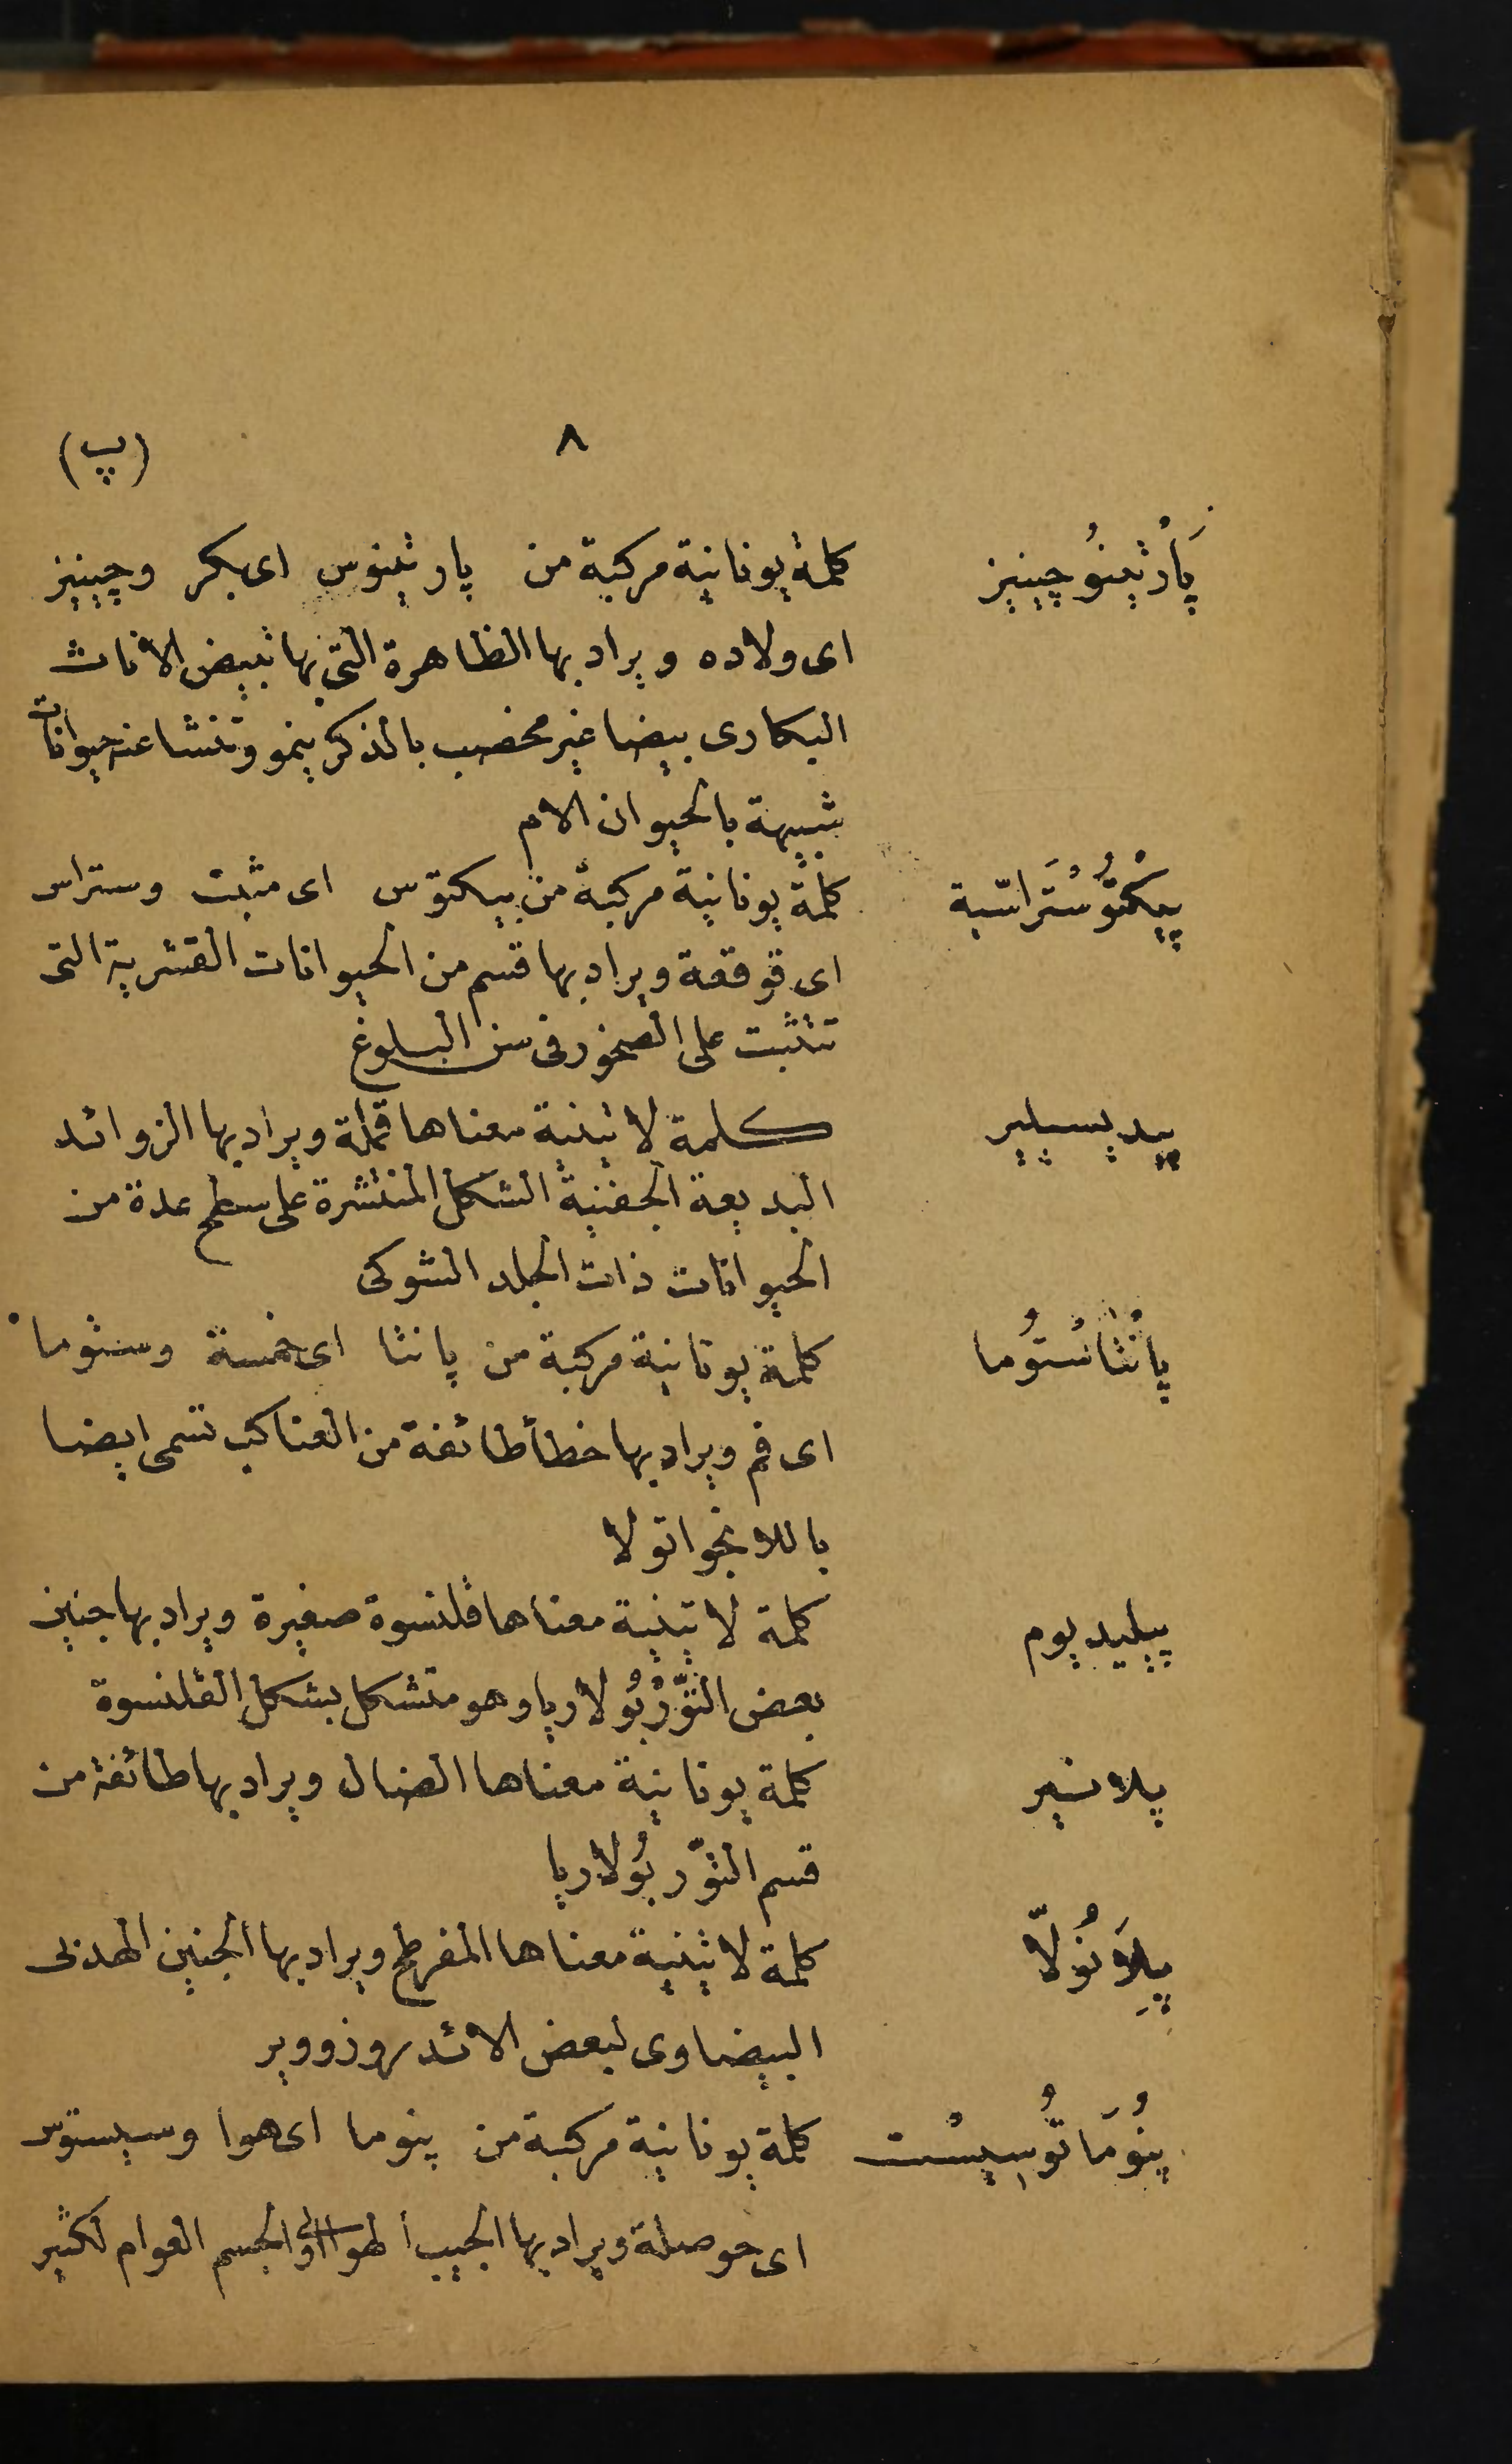 ٨ (پ)
پَارْثِينُوچِينيز كلمة يونانية مركبة من پارثينوس اى بكر وچينيز
اى ولاده ويراد بها الظاهرة التى بها تبيض الاناث
البكارى بيضا غير مخصب بالذكر ينمو وتنشا عنه حيوانات
شبيهة بالحيوان الام
پيكْتُوسْتَراسّية كلمة يونانية مركبة من پيكتوس اى مثبت وستراس
اى قوقعة ويراد بها قسم من الحيوانات القشرية التى
تتثبت على الصخور فى سن البلوغ
پيديسيلير كلمة لاتينية معناها قملة ويراد بها الزوائد
البديعة الجفنية الشكل المنتشرة على سطح عدة من
الحيوانات ذات الجلد الشوكى
پانْتاسْتُوما كلمة يونانية مركبة من پانتا اى خمسة وستوما
اى فم ويراد بها خطأ طائفة من العناكب تسمى ايضا
باللانجواتولا
پيليديوم كلمة لاتينية معناها قلنسوة صغيرة ويراد بها جنين
بعض التُّورْبُولاريا وهو متشكل بشكل القلنسوة
پلانير كلمة يونانية معناها الضال ويراد بها طائفة من
قسم التُّوربُولاريا
پِلَانُولّا كلمة لاتينية معناها المفرطح ويراد بها الجنين الهدبى
البيضاوى لبعض الائدروزووير
پنُومَاتُوسِيسْت كلمة يونانية مركبة من پنوما اى هوا وسيستوس
اى حوصلة ويراد بها الجيب الهوائى او الجسم العوام لكثير